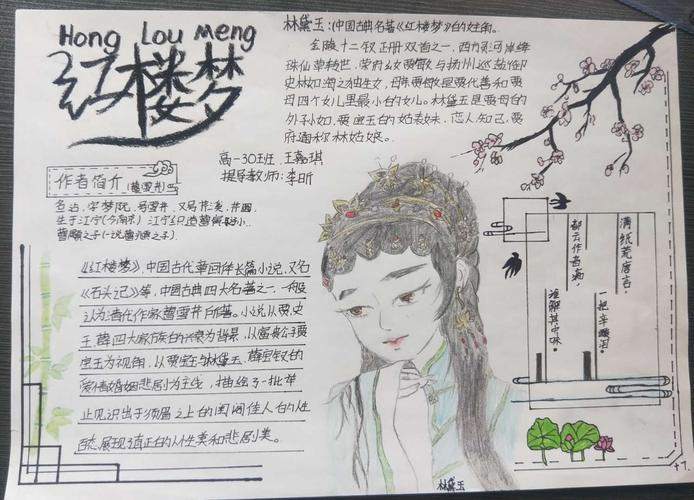 Hong Lou Meng
红楼梦
林黛玉:中国古典名著《红楼梦》的女主角。
金陵十二钗正册双首之一,西方灵河岸绛
珠仙草转世,荣府幺女贾敏与扬州巡盐御
史林如海之独生女,母亲贾敏是贾代善和贾
母四个女儿里最小的女儿。林黛玉是贾母的
外孙女,贾宝玉的姑表妹、恋人、知己,贾
府通称林姑娘。
高一30班,王嘉琪
提导教师:李昕
作者简介(曹雪芹)
名沾,字梦阮,号雪芹,又号芹溪、芹圃
生于江宁(今南京)江宁织造曹寅
曹颙之子(一说曹頫之子)
《红楼梦》,中国古代章回体长篇小说,又名
《石头记》等,中国古典四大名著之一,一般
认为清代作家曹雪芹所著。小说以贾史
王薛四大家族的兴衰为背景,以富贵公子贾
宝玉为视角,以贾宝玉与林黛玉、薛宝钗的
爱情婚姻悲剧为主线,描绘了一批举
止见识出于须眉之上的闺阁佳人的人性
百态,展现了真正的人性美和悲剧美。
满纸荒唐言,
一把辛酸泪。
都云作者痴,
谁解其中味。
林黛玉